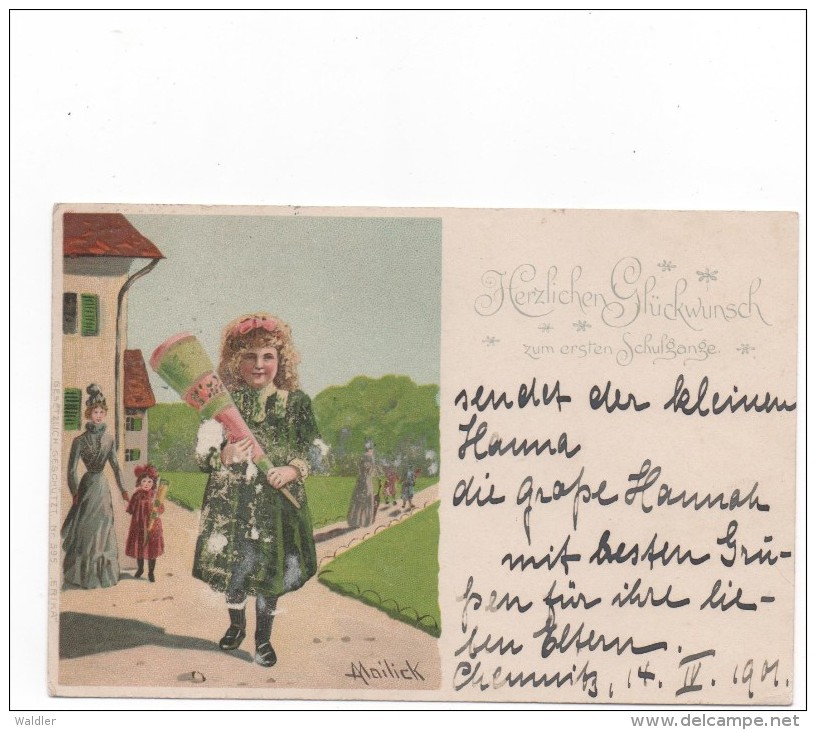 Herzlichen Glückwunsch
zum ersten Schulgange.
sendet der kleinen
Hanna
die große Hannah
mit besten Grü-
ßen für ihre lie-
ben Eltern.
Chemnitz, 14. IV. 1901.
AMailick
GESETZLICH GESCHÜTZT
Waldler
delcampe.net